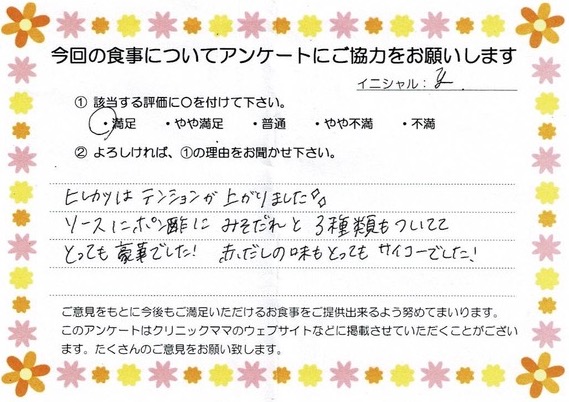 今回の食事についてアンケートにご協力をお願いします
イニシャル：
① 該当する評価に〇を付けて下さい。
・満足 ・やや満足 ・普通 ・やや不満 ・不満
② よろしければ、①の理由をお聞かせ下さい。
ヒレカツはテンションが上がりました
ソースにポン酢にみそだれと3種類もついてて
とっても豪華でした! 赤だしの味もとってもサイコーでした!
ご意見をもとに今後もご満足いただけるお食事をご提供出来るよう努めてまいります。
このアンケートはクリニックママのウェブサイトなどに掲載させていただくことがござい
ます。たくさんのご意見をお願い致します。